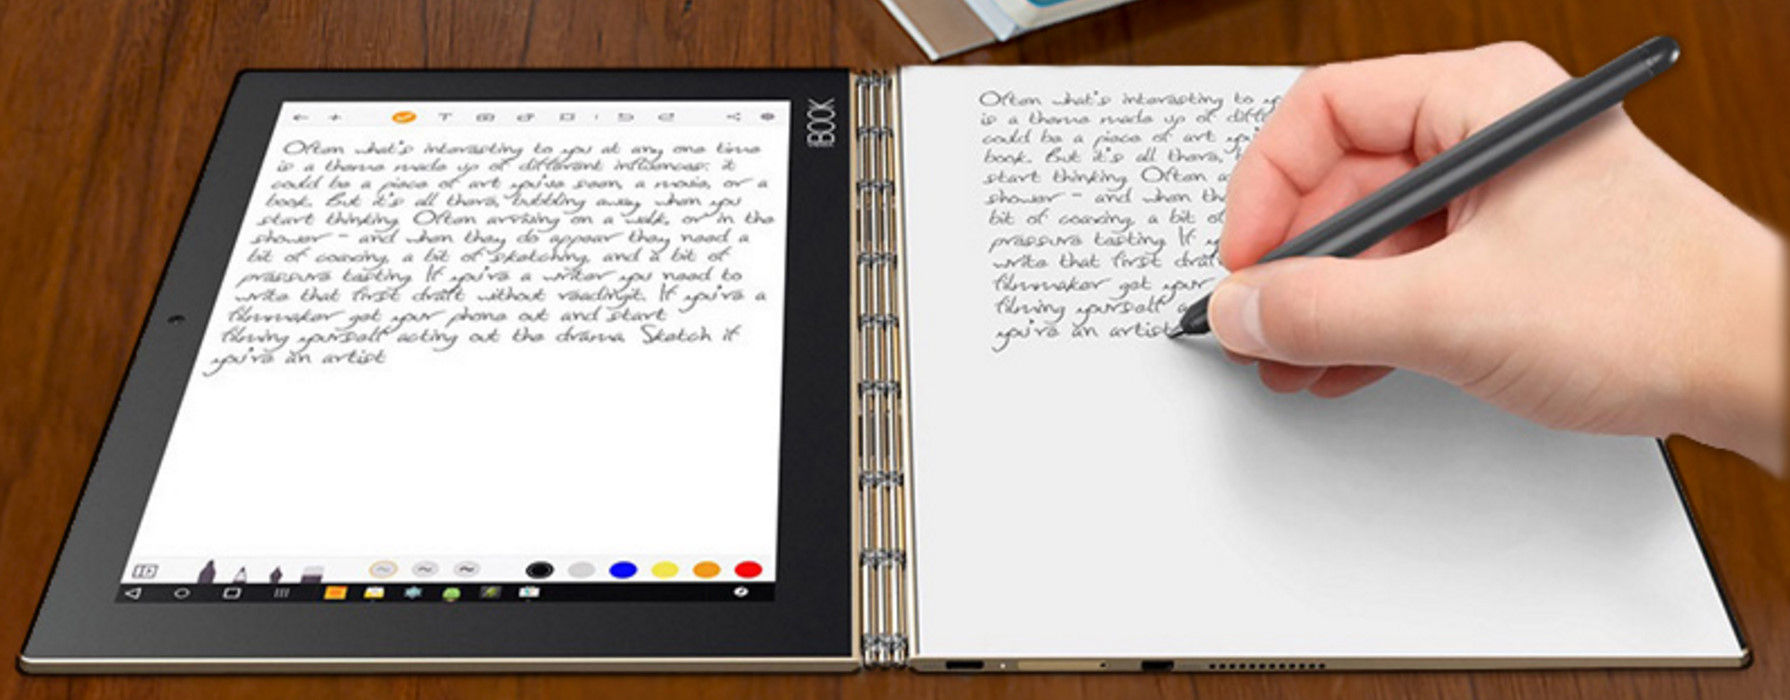 Often what's interesting to you at any one time
is a theme made up of different influences: it
could be a piece of art you've seen, a movie, or a
book. But it's all there, bubbling away when you
start thinking. Often arriving on a walk, or in the
shower - and when they do appear they need a
bit of coaxing, a bit of sketching, and a bit of
pressure testing. If you're a writer you need to
write that first draft without readingit. If you're a
filmmaker get your phone out and start
filming yourself acting out the drama. Sketch if
you're an artist
BOOK
Often what's interesting to
is a theme made up of
could be a piece of art
book. But it's all there,
start thinking. Often
shower - and when the
bit of coaxing, a bit of
pressure testing. If
write that first draft
filmmaker get your
filming yourself
you're an artist